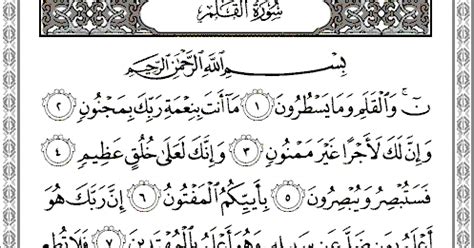 سُورَةُ القَلَمِ
بِسْمِ اللَّهِ الرَّحْمَٰنِ الرَّحِيمِ
نٓ ۚ وَالْقَلَمِ وَمَا يَسْطُرُونَ ١ مَا أَنتَ بِنِعْمَةِ رَبِّكَ بِمَجْنُونٍ ٢
وَإِنَّ لَكَ لَأَجْرًا غَيْرَ مَمْنُونٍ ٣ وَإِنَّكَ لَعَلَىٰ خُلُقٍ عَظِيمٍ ٤
فَسَتُبْصِرُ وَيُبْصِرُونَ ٥ بِأَييِّكُمُ الْمَفْتُونُ ٦ إِنَّ رَبَّكَ هُوَ
أَعْلَمُ بِمَن ضَلَّ عَن سَبِيلِهِ وَهُوَ أَعْلَمُ بِالْمُهْتَدِينَ ٧ فَلَا تُطِعِ